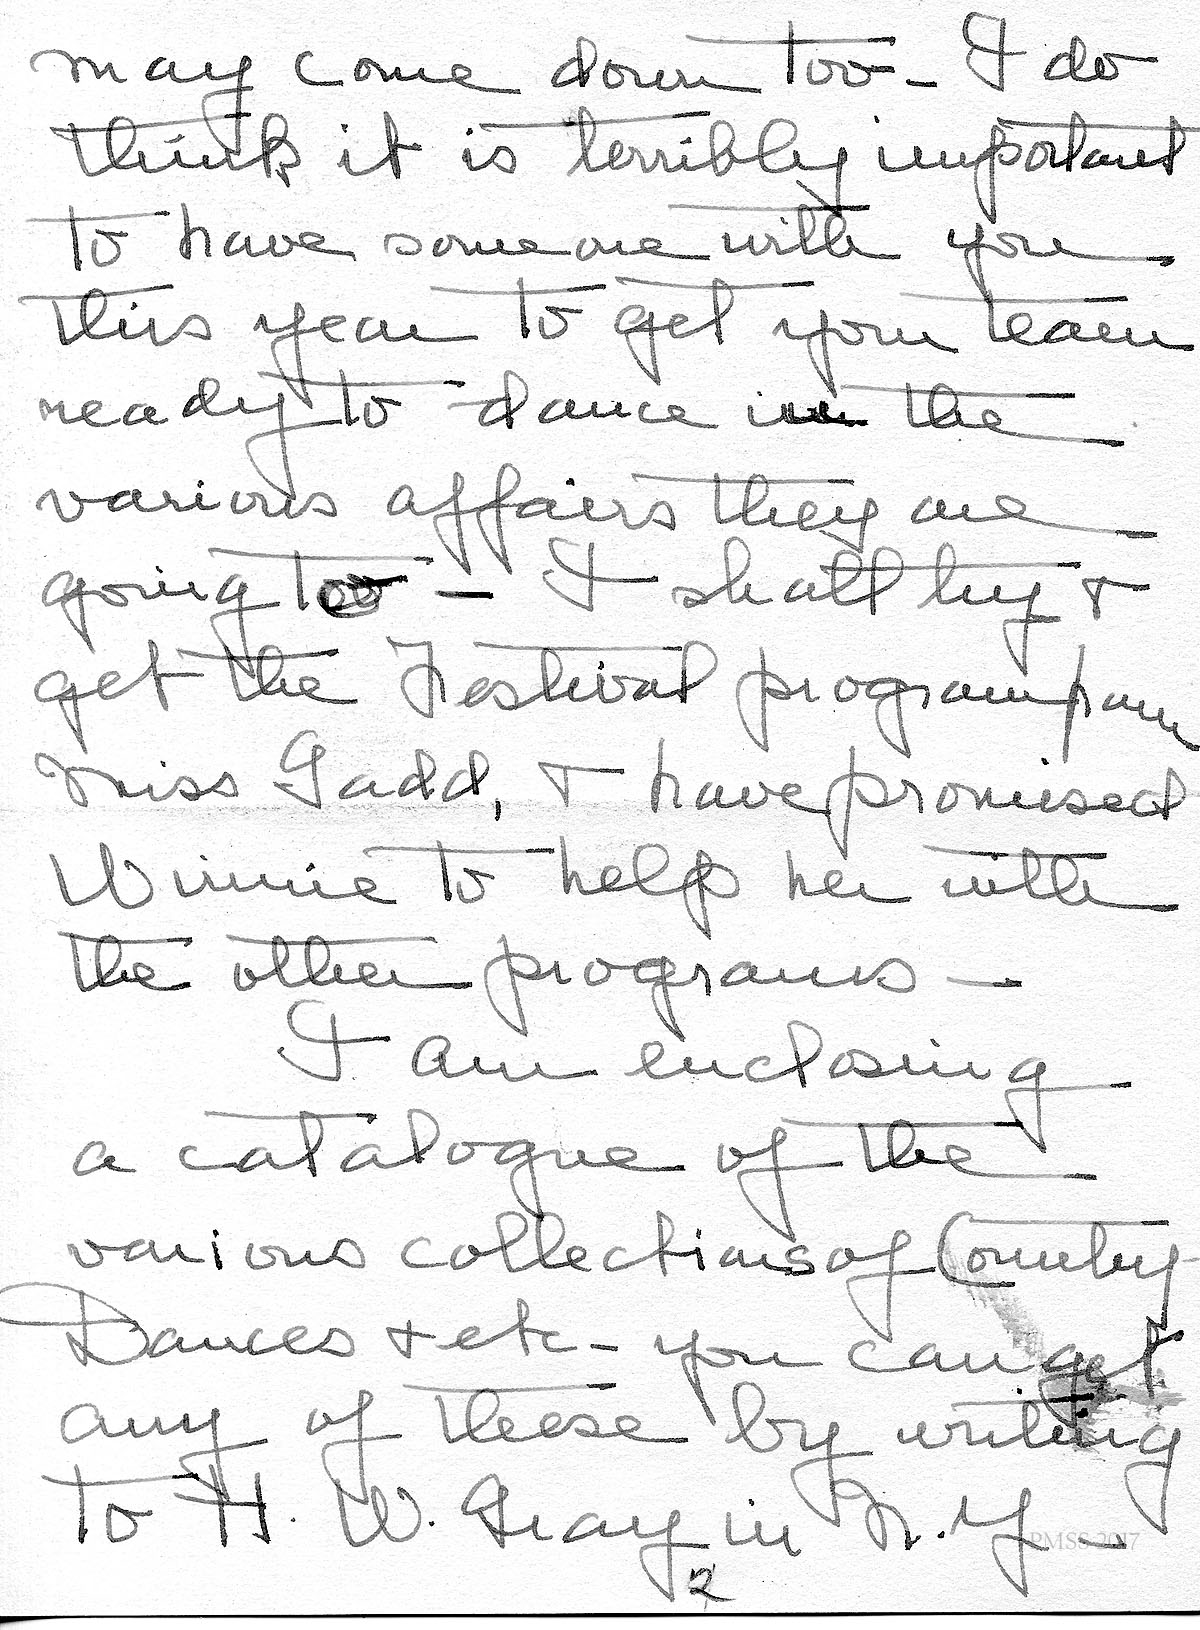 may come down too - I do
think it is terribly important
to have someone with you
this year to get your team
ready to dance in the
various affairs they are
going to - I shall try &
get the Festival program from
Miss Gadd, & have promised
Winnie to help her with
the other programs -
I am enclosing
a catalogue of the
various collections of Country
Dances & etc - you can get
any of these by writing
to H. W. Gray in N.Y.
PMSS 2017
2